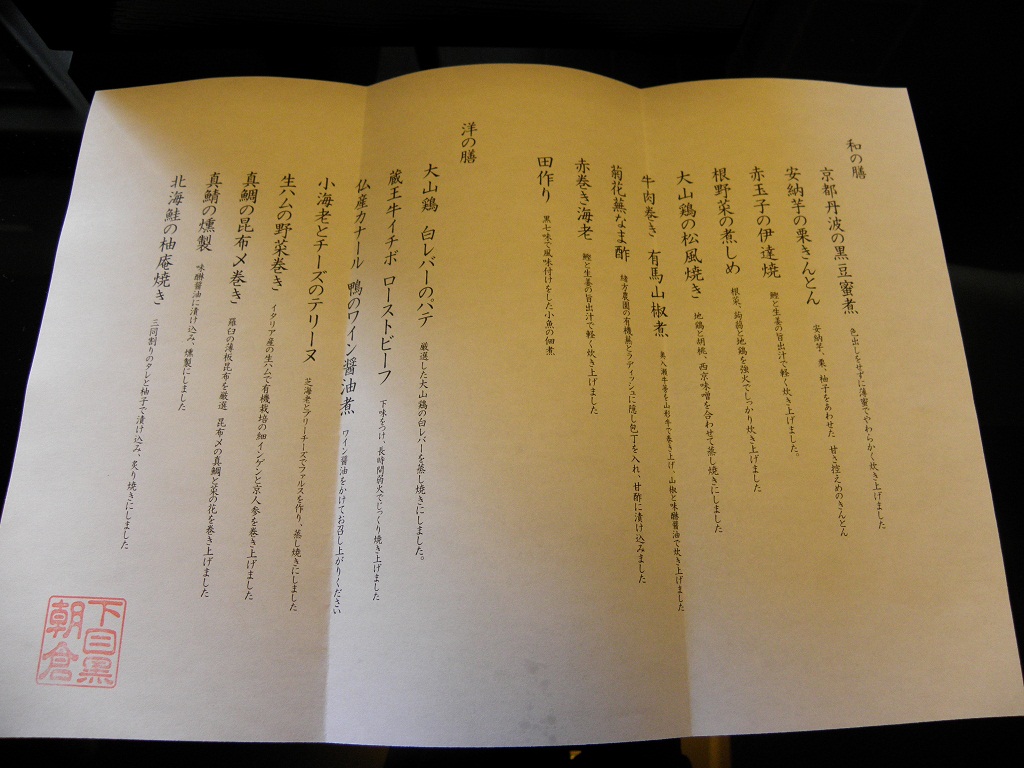 和の膳
京都丹波の黒豆蜜煮 色出しをせずに薄蜜でやわらかく炊き上げました
安納芋の栗きんとん 安納芋、栗、柚子をあわせた 甘さ控えめのきんとん
赤玉子の伊達焼 鰹と生姜の旨出汁で軽く炊き上げました。
根野菜の煮しめ 根菜、蒟蒻と地鶏を強火でしっかり炊き上げました
大山鶏の松風焼き 地鶏と胡桃、西京味噌を合わせて蒸し焼きにしました
牛肉巻き 有馬山椒煮 牛蒡を山形牛で巻き上げ、山椒と味醂醤油で炊き上げました
菊花蕪なま酢 緒方農園の有機蕪とラディッシュに隠し包丁を入れ、甘酢に漬け込みました
赤巻き海老 鰹と生姜の旨出汁で軽く炊き上げました
田作り 黒七味で風味付けをした小魚の佃煮
洋の膳
大山鶏 白レバーのパテ 厳選した大山鶏の白レバーを蒸し焼きにしました。
蔵王牛イチボ ローストビーフ 下味をつけ、長時間弱火でじっくり焼き上げました
仏産カナール 鴨のワイン醤油煮 ワイン醤油をかけてお召し上がりください
小海老とチーズのテリーヌ 芝海老とクリーチーズでファルスを作り、蒸し焼きにしました
生ハムの野菜巻き イタリア産の生ハムで有機栽培の細インゲンと京人参を巻き上げました
真鯛の昆布〆巻き 羅臼の薄板昆布を厳選 昆布〆の真鯛と菜の花を巻き上げました
真鯖の燻製 味醂醤油に漬け込み、燻製にしました
北海鮭の柚庵焼き 三同割りのタレと柚子で漬け込み、炙り焼きにしました
下目黒
朝倉